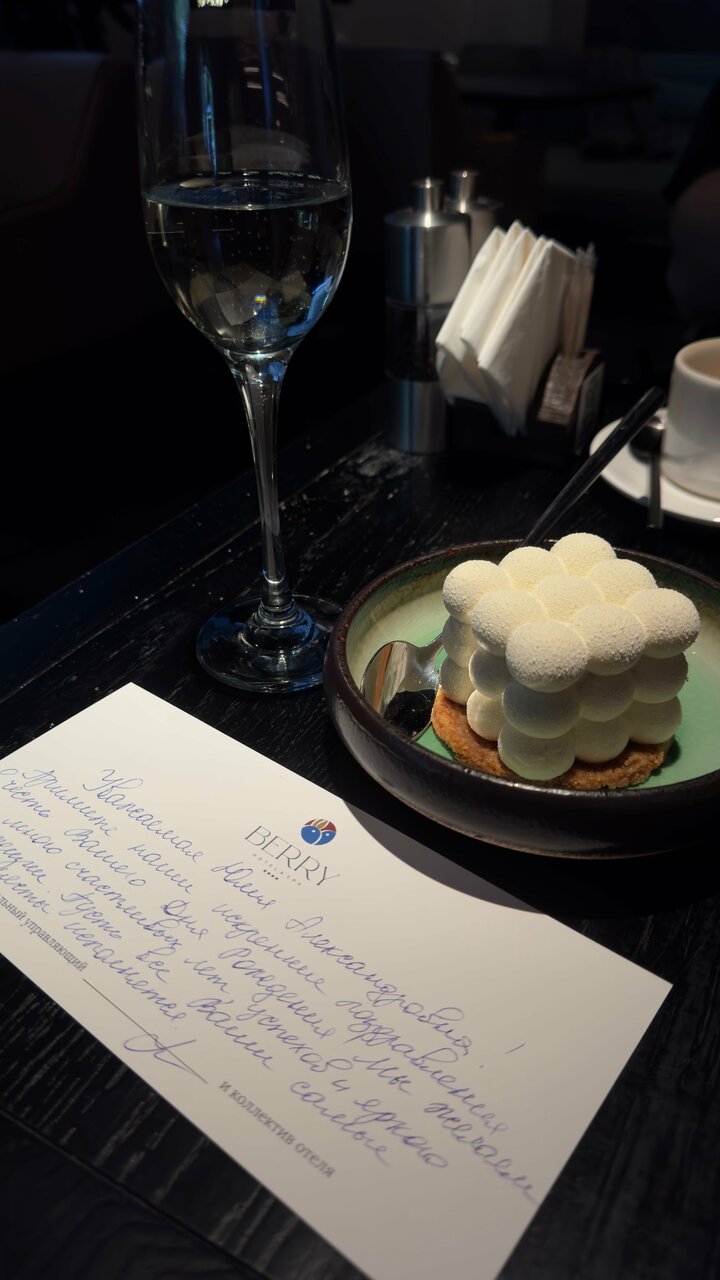 BERRY
Уважаемая Юлия Александровна!
Примите наши искренние поздравления
честь Вашего Дня Рождения! Мы желаем
много счастливых лет, успехов и яркого
Пусть все Ваши самые
исполнятся.
управляющий
и коллектив отеля